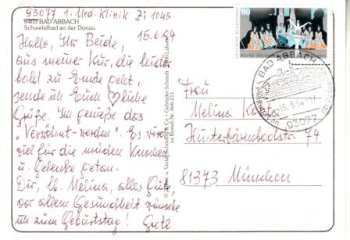 93077 1. Med. Klinik Zi 1045
8403 BAD ABBACH
Schwefelbad an der Donau
15.6.94
Hallo, Ihr Beide,
aus meiner Kur, die leider
bald zu Ende geht,
sende ich Euch liebe
Grüße. Ich genieße das
"Verwöhnt-werden". Es wird
viel für die müden Knochen
u. Gelenke getan.
Dir, lb. Melina, alles Gute,
vor allem Gesundheit wünsche
ich zum Geburtstag! Grete
BAD ABBACH
93077
Frau
Melina
81373 München